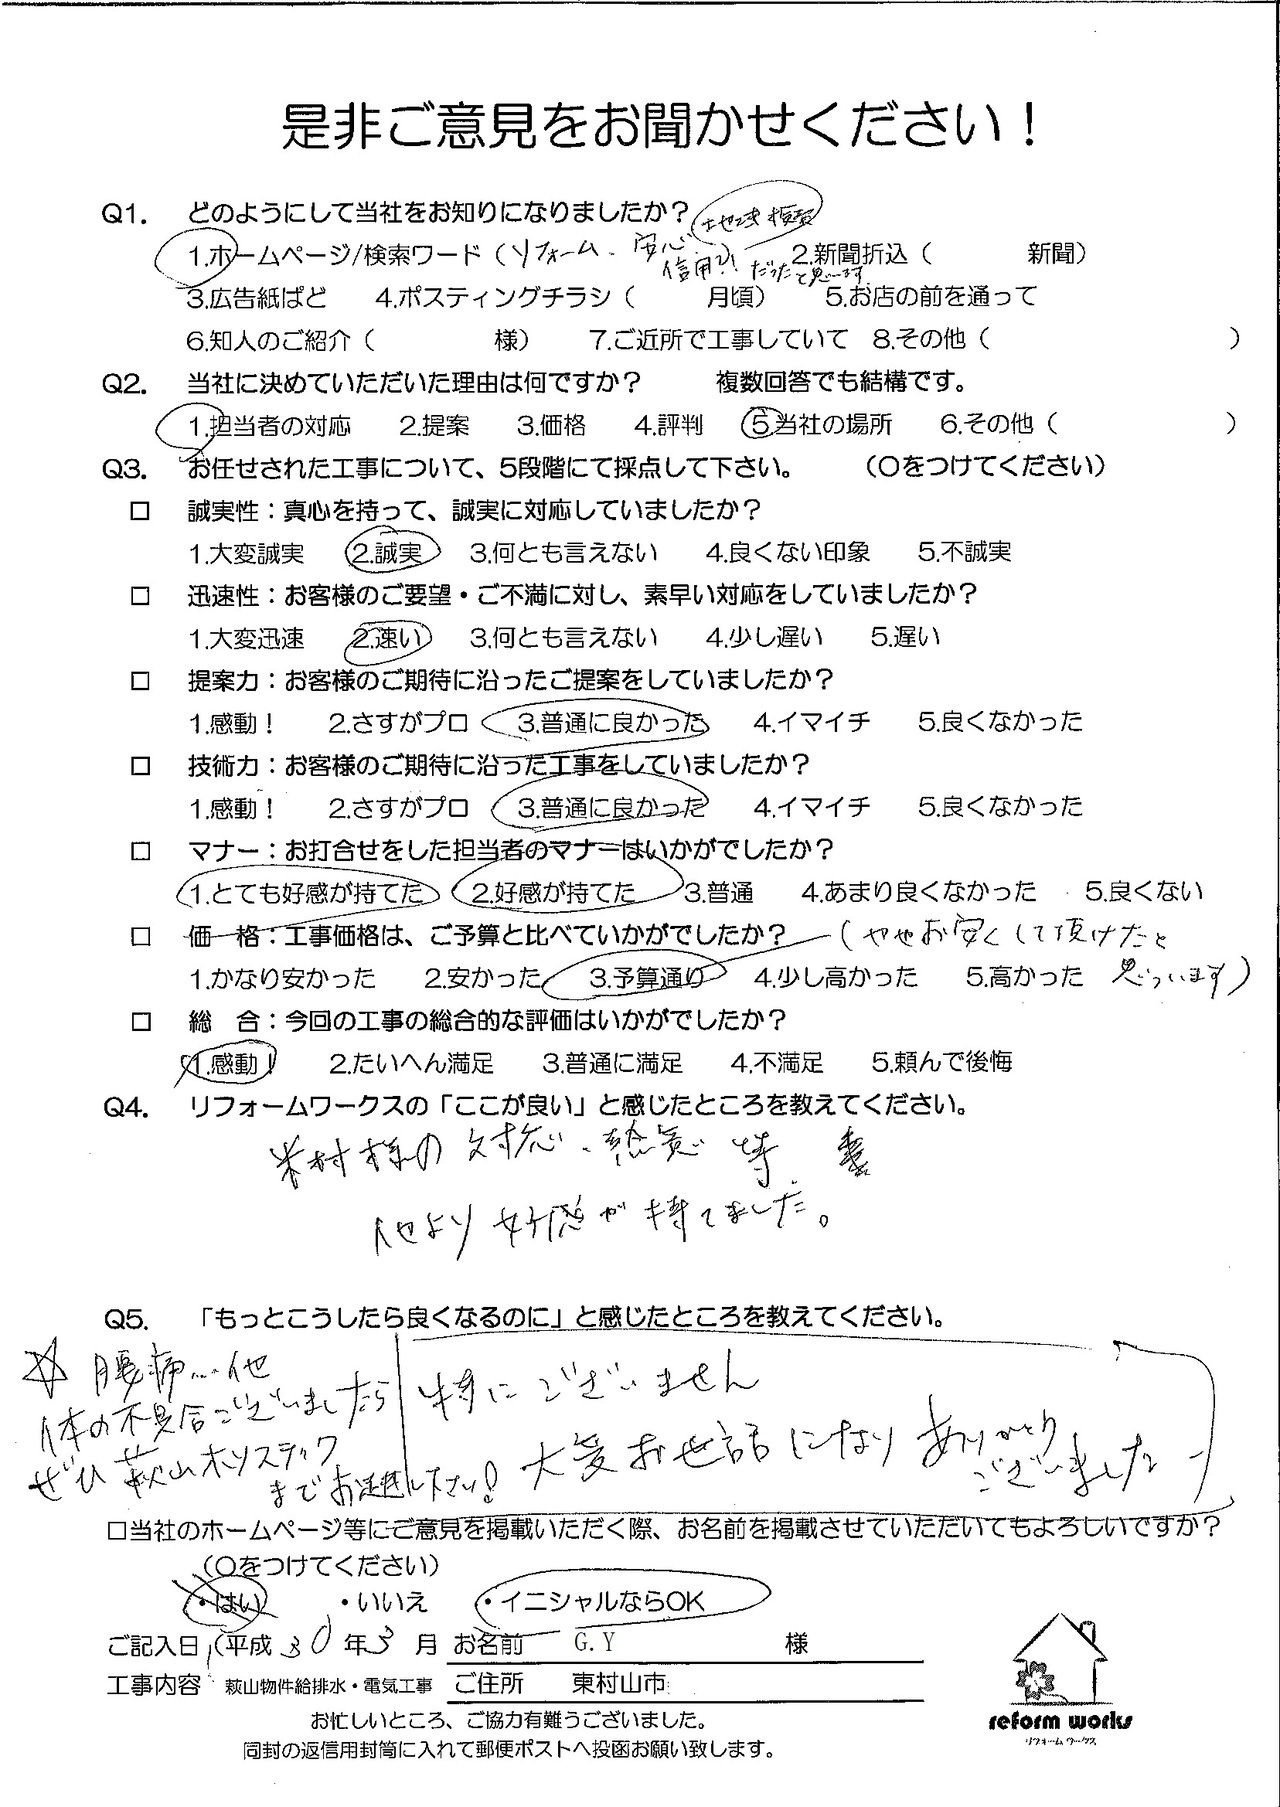 是非ご意見をお聞かせください！
Q1. どのようにして当社をお知りになりましたか？ 地域検索
1.ホームページ/検索ワード（リフォーム、安心 2.新聞折込（ 新聞）
信用?! だったと思います
3.広告紙ぱど 4.ポスティングチラシ（ 月頃） 5.お店の前を通って
6.知人のご紹介（ 様） 7.ご近所で工事していて 8.その他（ ）
Q2. 当社に決めていただいた理由は何ですか？ 複数回答でも結構です。
1.担当者の対応 2.提案 3.価格 4.評判 5.当社の場所 6.その他（ ）
Q3. お任せされた工事について、5段階にて採点して下さい。 （○をつけてください）
□ 誠実性：真心を持って、誠実に対応していましたか？
1.大変誠実 2.誠実 3.何とも言えない 4.良くない印象 5.不誠実
□ 迅速性：お客様のご要望・ご不満に対し、素早い対応をしていましたか？
1.大変迅速 2.速い 3.何とも言えない 4.少し遅い 5.遅い
□ 提案力：お客様のご期待に沿ったご提案をしていましたか？
1.感動！ 2.さすがプロ 3.普通に良かった 4.イマイチ 5.良くなかった
□ 技術力：お客様のご期待に沿った工事をしていましたか？
1.感動！ 2.さすがプロ 3.普通に良かった 4.イマイチ 5.良くなかった
□ マナー：お打合せをした担当者のマナーはいかがでしたか？
1.とても好感が持てた 2.好感が持てた 3.普通 4.あまり良くなかった 5.良くない
□ 価 格：工事価格は、ご予算と比べていかがでしたか？ （ややお安くして頂けたと
1.かなり安かった 2.安かった 3.予算通り 4.少し高かった 5.高かった 思っています）
□ 総 合：今回の工事の総合的な評価はいかがでしたか？
1.感動！ 2.たいへん満足 3.普通に満足 4.不満足 5.頼んで後悔
Q4. リフォームワークスの「ここが良い」と感じたところを教えてください。
米村様の対応、熱意 等
他より好感が持てました。
Q5. 「もっとこうしたら良くなるのに」と感じたところを教えてください。
☆ 腰痛…他
体の不具合ございましたら
ぜひ萩山ホリスティック
までお越し下さい！
特にございません
大変お世話になりありがとう
ございました
□当社のホームページ等にご意見を掲載いただく際、お名前を掲載させていただいてもよろしいですか？
（○をつけてください）
・はい ・いいえ ・イニシャルならOK
ご記入日（平成 30 年 3 月 お名前 G.Y 様
工事内容 萩山物件給排水・電気工事 ご住所 東村山市
お忙しいところ、ご協力有難うございました。
同封の返信用封筒に入れて郵便ポストへ投函お願い致します。
reform works
リフォームワークス